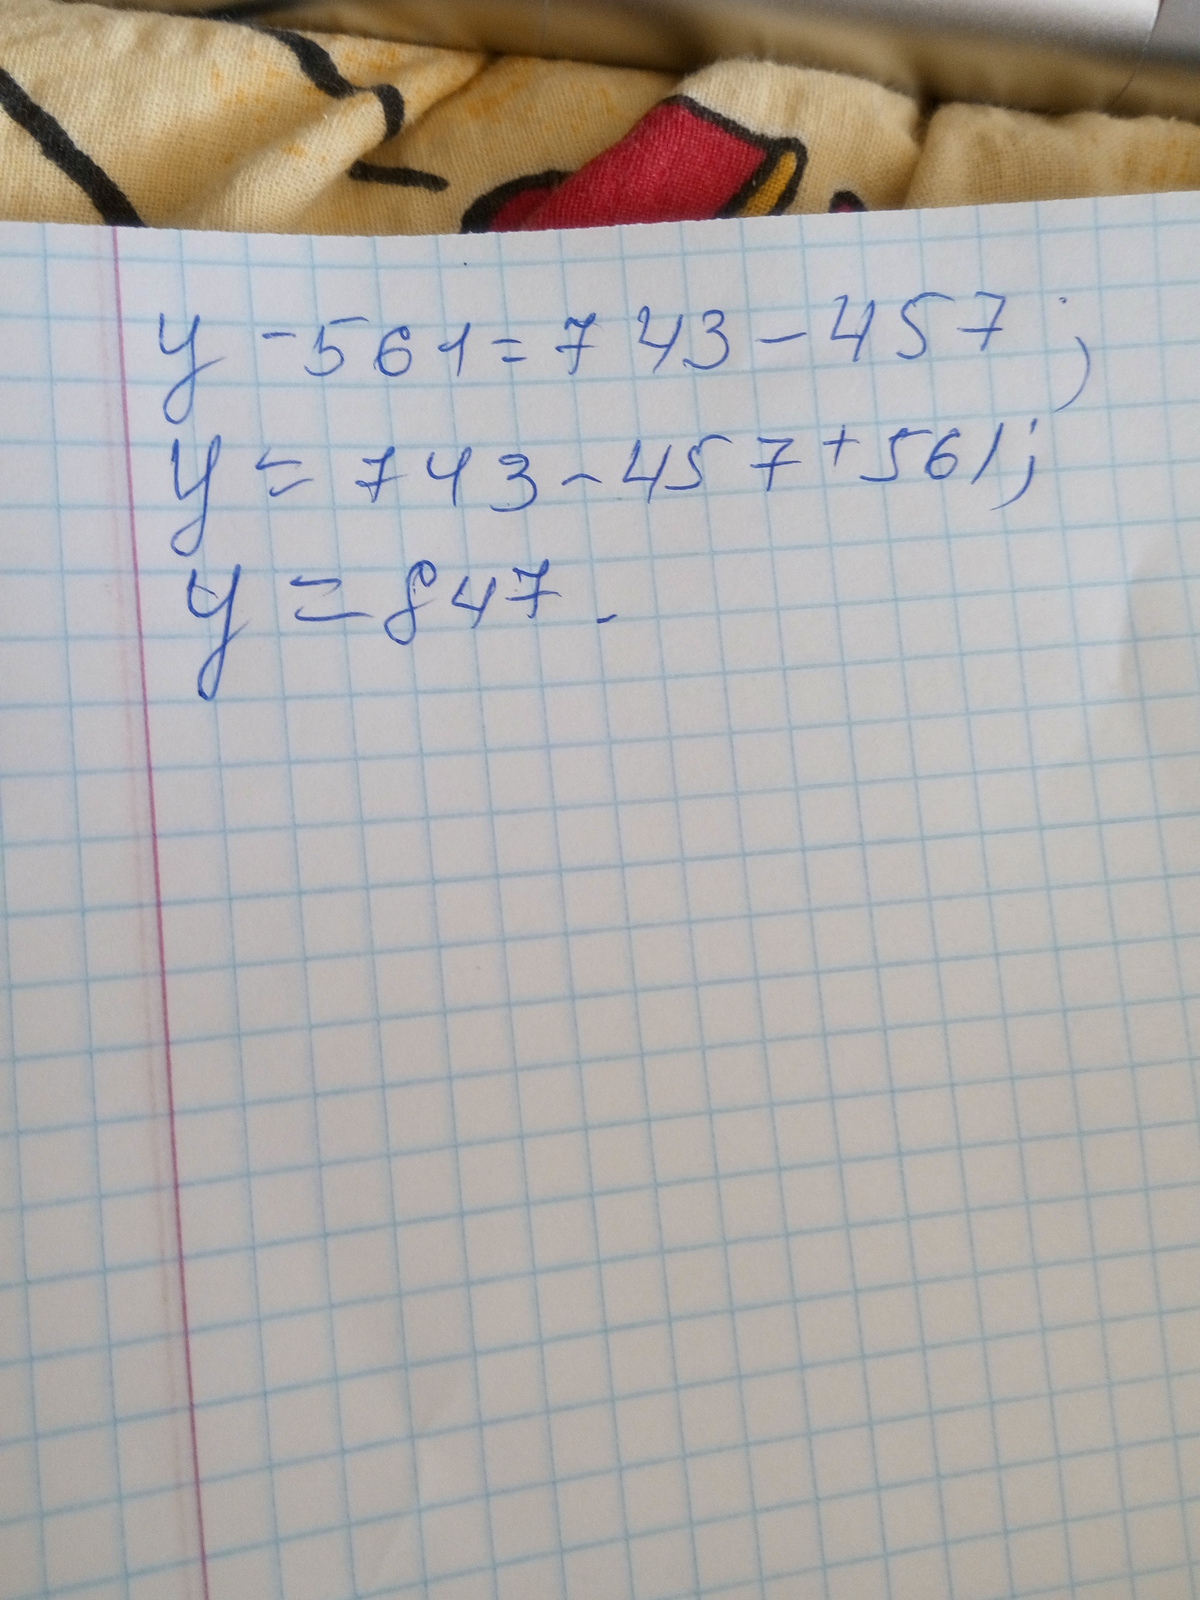 y - 561 = 743 - 457;
y = 743 - 457 + 561;
y = 847.